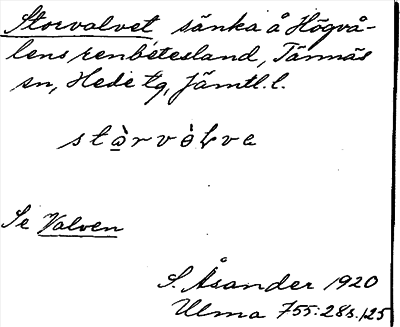 Storvalvet, sänka å Högvå-
lens renbetesland, Tännäs
sn, Hede tg, Jämtl. l.
Se Valven
S. Åsander 1920
Ulma 755:28 s. 125